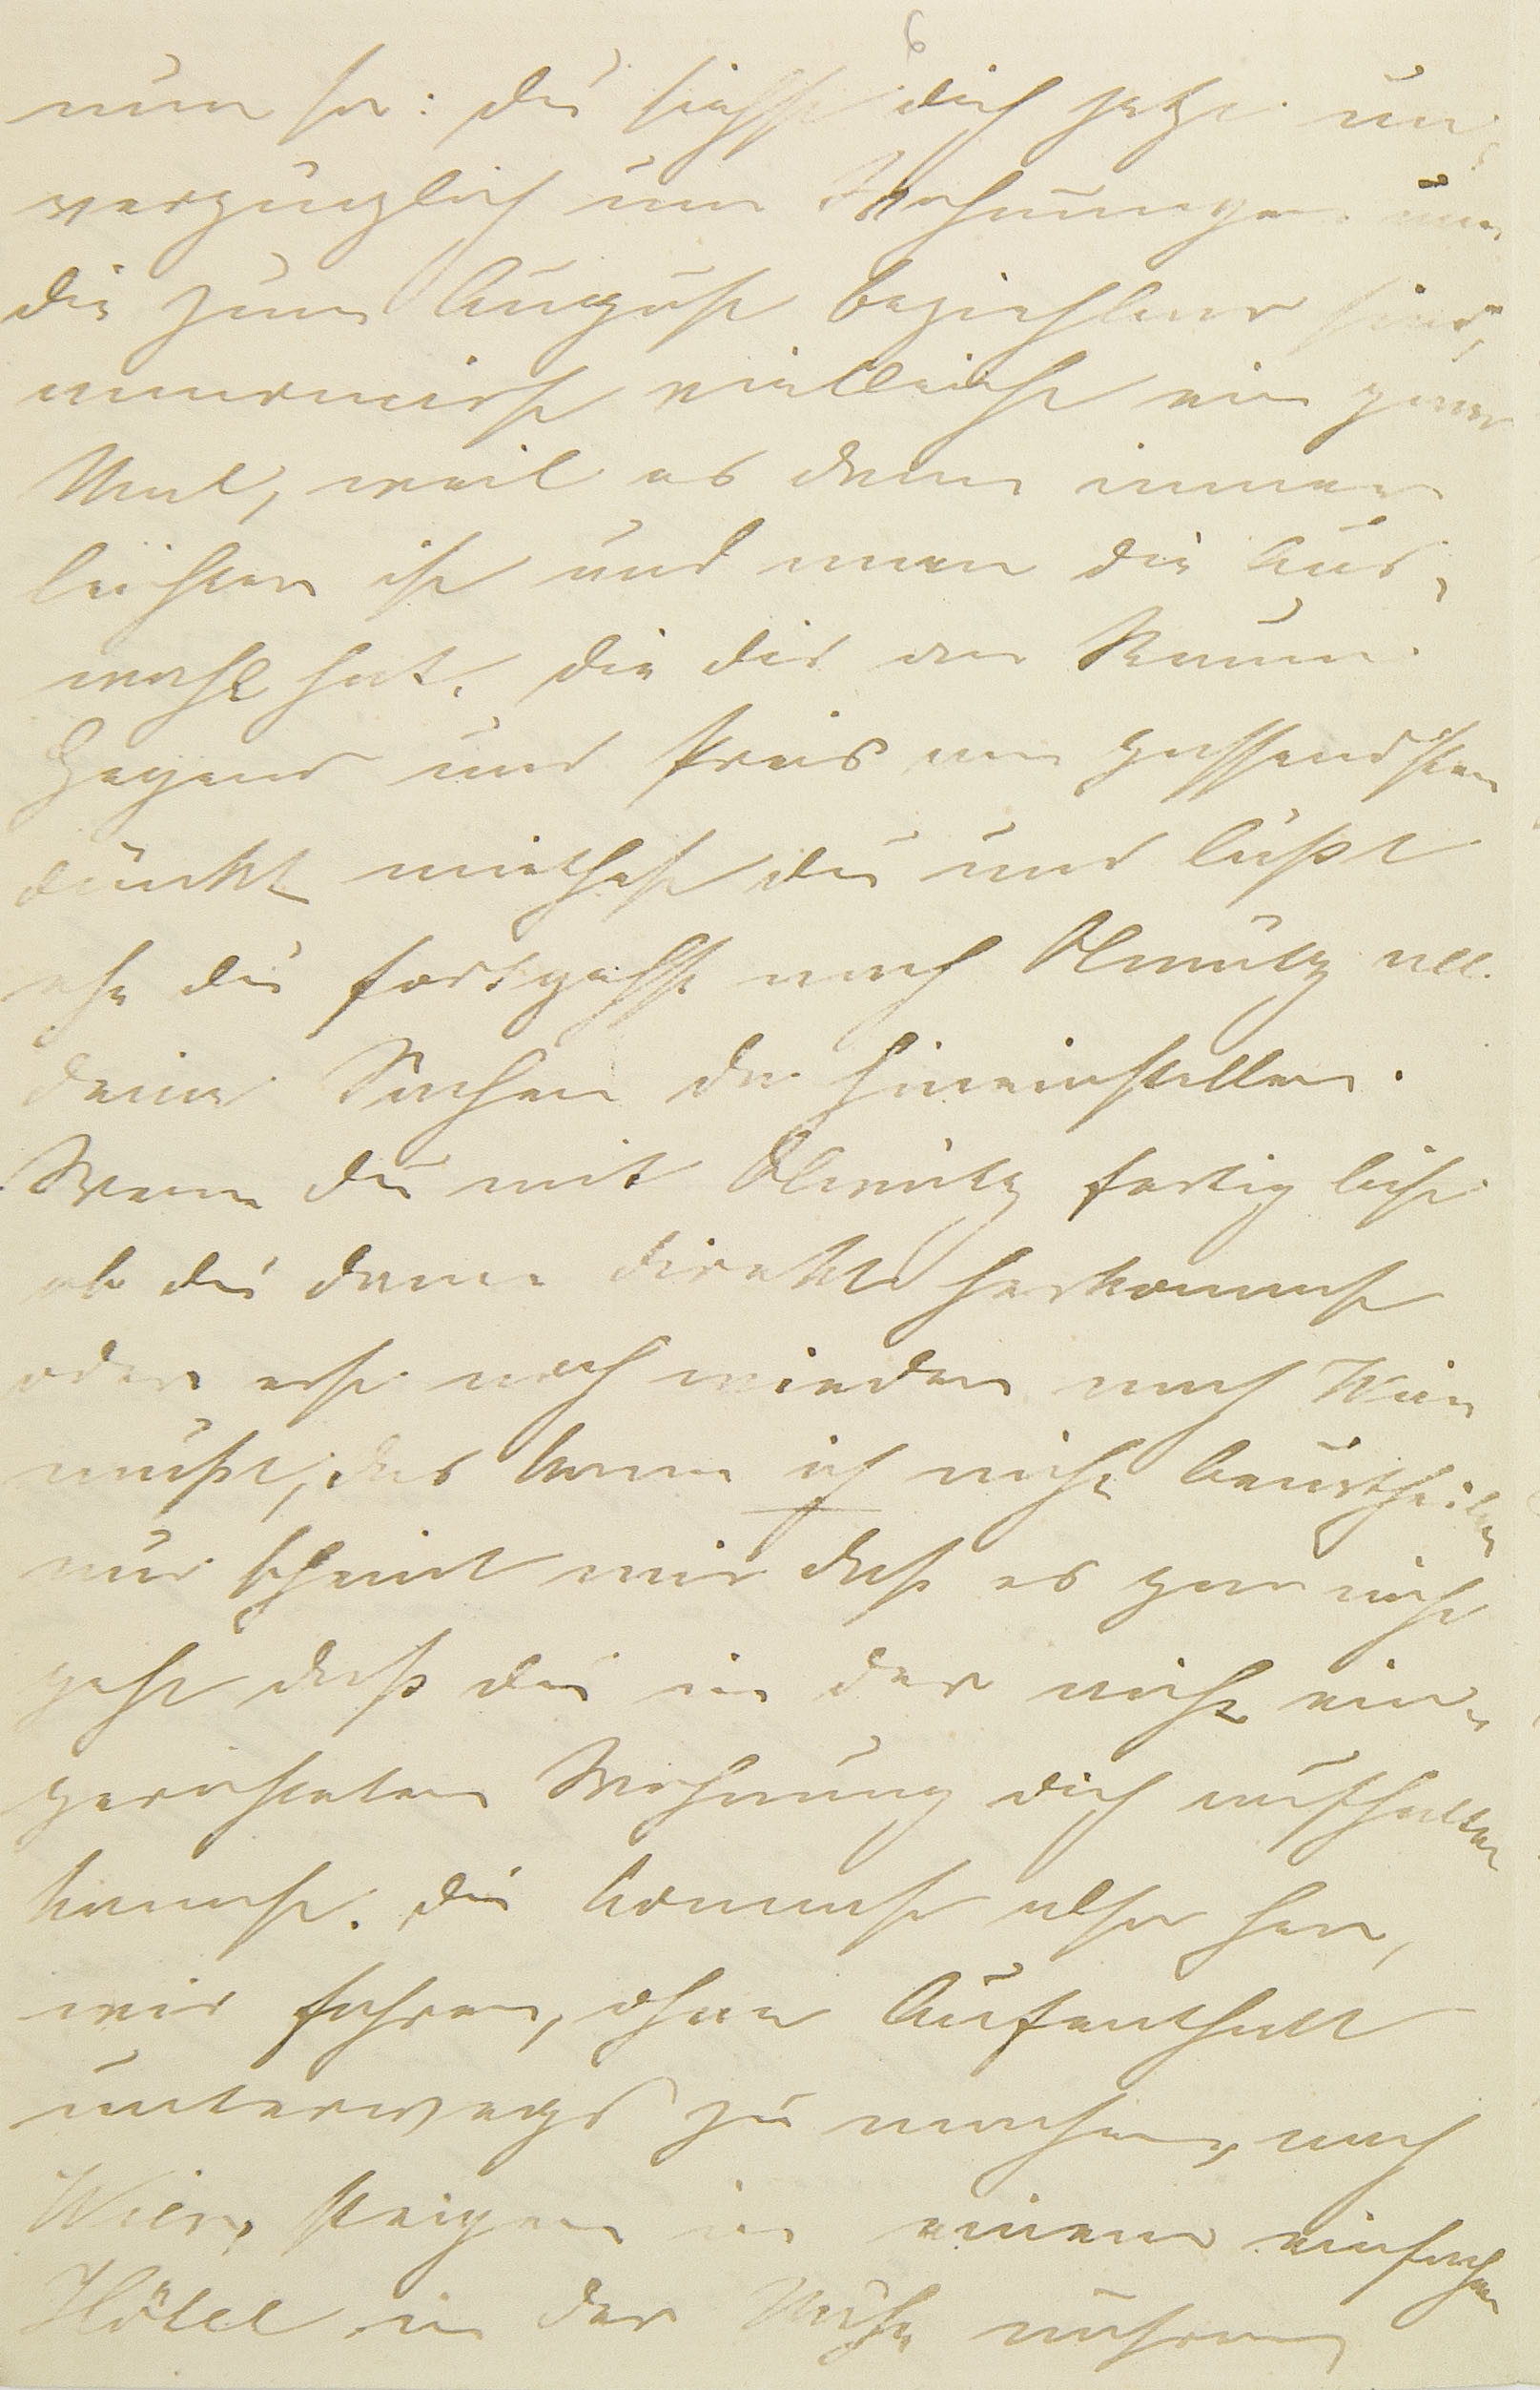 6
nun so: du siehst dich jetzt un-
verzüglich um Wohnungen um
die zum August beziehbar sind,
annoncirst vielleicht ein paar
Mal, weil es dann immer
leichter ist und man die Aus-
wahl hat. die dir an Raum
Gegend und Preis am passendsten
dünkt miethest du und läßt
ehe du fortgehst nach Olmütz all
deine Sachen da hineinstellen.
Wenn du mit Olmütz fertig bist
ob du dann direkt herkommst
oder erst noch wieder nach Wien
mußt, das kann ich nicht beurtheilen
nur scheint mir daß es gar nicht
geht daß du in der nicht ein-
gerichteten Wohnung dich aufhalten
kannst. du kommst also her,
wir fahren, ohne Aufenthalt
unterwegs zu machen, nach
Wien, steigen in einem einfachen
Hôtel in der Nähe unsrer